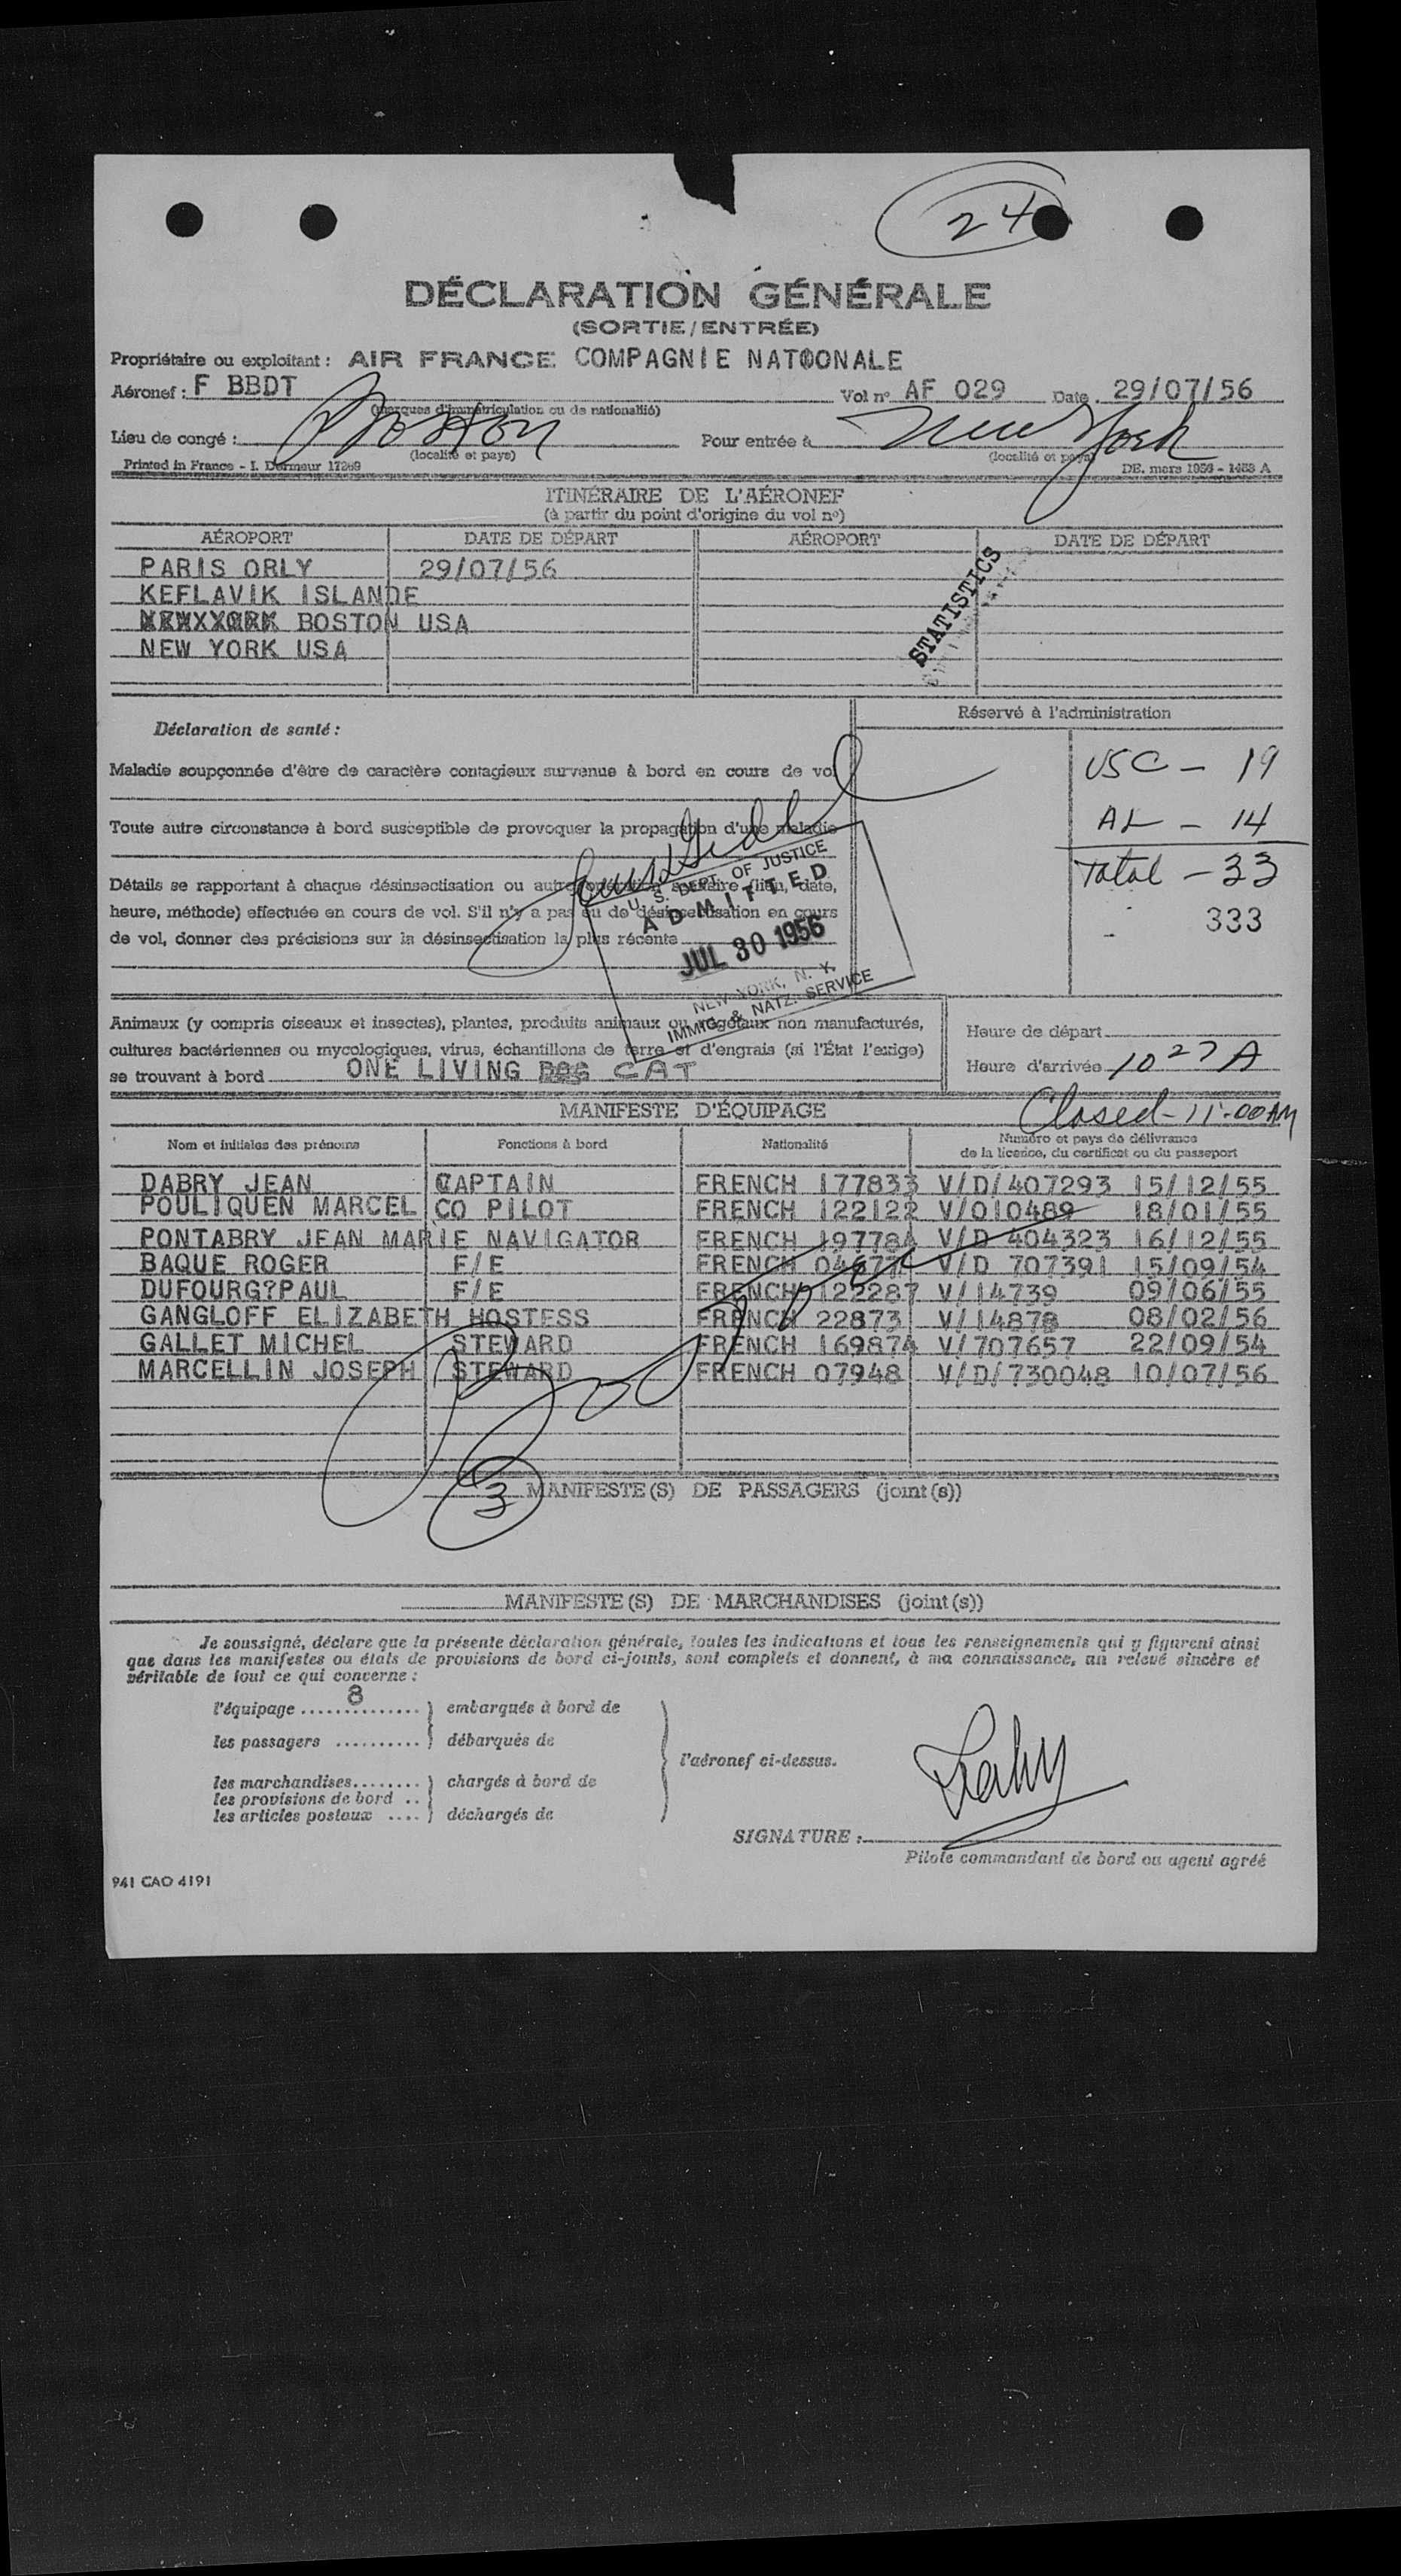 24
DÉCLARATION GÉNÉRALE
(SORTIE/ENTRÉE)
Propriétaire ou exploitant : AIR FRANCE COMPAGNIE NATOONALE
Aéronef : F BBDT Vol nº AF 029 Date 29/07/56
(marques d'immatriculation ou de nationalité)
Lieu de congé : Boston Pour entrée à New York
(localité et pays) (localité et pays)
Printed in France - I. Dermeur 17269 DE. mars 1956 - 1453 A
ITINÉRAIRE DE L'AÉRONEF
(à partir du point d'origine du vol nº)
AÉROPORT DATE DE DÉPART AÉROPORT DATE DE DÉPART
PARIS ORLY 29/07/56
KEFLAVIK ISLANDE
BOSTON USA
NEW YORK USA
STATISTICS
Réservé à l'administration
Déclaration de santé :
Maladie soupçonnée d'être de caractère contagieux survenue à bord en cours de vol
USC - 19
AL - 14
Total - 33
- 333
Toute autre circonstance à bord susceptible de provoquer la propagation d'une maladie
Détails se rapportant à chaque désinsectisation ou autre opération sanitaire (lieu, date,
heure, méthode) effectuée en cours de vol. S'il n'y a pas eu de désinsectisation en cours
de vol, donner des précisions sur la désinsectisation la plus récente
U. S. DEPT. OF JUSTICE
ADMITTED
JUL 30 1956
NEW YORK, N. Y.
IMMIG. & NATZ. SERVICE
Animaux (y compris oiseaux et insectes), plantes, produits animaux ou végétaux non manufacturés,
cultures bactériennes ou mycologiques, virus, échantillons de terre et d'engrais (si l'État l'exige)
se trouvant à bord ONE LIVING DOG CAT
Heure de départ
Heure d'arrivée 10 27 A
Closed - 11:00 AM
MANIFESTE D'ÉQUIPAGE
Nom et initiales des prénoms Fonctions à bord Nationalité Numéro et pays de délivrance
de la licence, du certificat ou du passeport
DABRY JEAN CAPTAIN FRENCH 177833 V/D/407293 15/12/55
POULIQUEN MARCEL CO PILOT FRENCH 122122 V/010489 18/01/55
PONTABRY JEAN MARIE NAVIGATOR FRENCH 197784 V/D 404323 16/12/55
BAQUE ROGER F/E FRENCH V/D 707391 15/09/54
DUFOURG?PAUL F/E FRENCH 122287 V/14739 09/06/55
GANGLOFF ELIZABETH HOSTESS FRENCH 22873 V/14878 08/02/56
GALLET MICHEL STEWARD FRENCH 169874 V/707657 22/09/54
MARCELLIN JOSEPH STEWARD FRENCH 07948 V/D/730048 10/07/56
3 MANIFESTE(S) DE PASSAGERS (joint(s))
MANIFESTE(S) DE MARCHANDISES (joint(s))
Je soussigné, déclare que la présente déclaration générale, toutes les indications et tous les renseignements qui y figurent ainsi
que dans les manifestes ou états de provisions de bord ci-joints, sont complets et donnent, à ma connaissance, un relevé sincère et
véritable de tout ce qui concerne :
l'équipage .....8......... embarqués à bord de
les passagers .......... débarqués de
l'aéronef ci-dessus.
les marchandises........ chargés à bord de
les provisions de bord ..
les articles postaux .... déchargés de
SIGNATURE :
Pilote commandant de bord ou agent agréé
941 CAO 4191